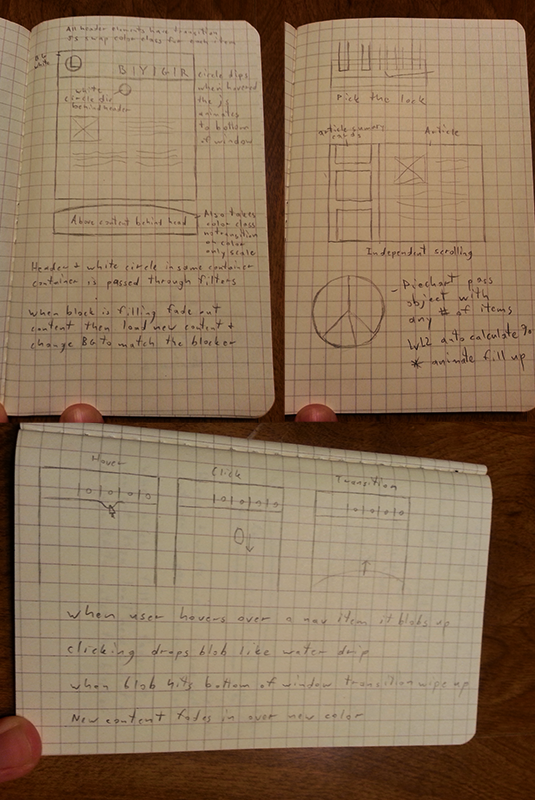 All header elements have transition
Js swap color class for each item
BG
white
L
B|Y|G|R
white
circle div
behind header
circle dips
when hovered
animates
to bottom
of window
Above content behind head
Also takes
color class
no transition
on color
only scale
Header + white circle in same container
container is passed through filters
when block is filling fade out
content then load new content +
change BG to match the blocker
Pick the lock
article summary
cards
Article
Independent scrolling
Piechart pass
object with
any # of items
will auto calculate %
* animate fill up
Hover
Click
Transition
When user hovers over a nav item it blobs up
clicking drops blob like water drip
when blob hits bottom of window transition wipe up
New content fades in over new color